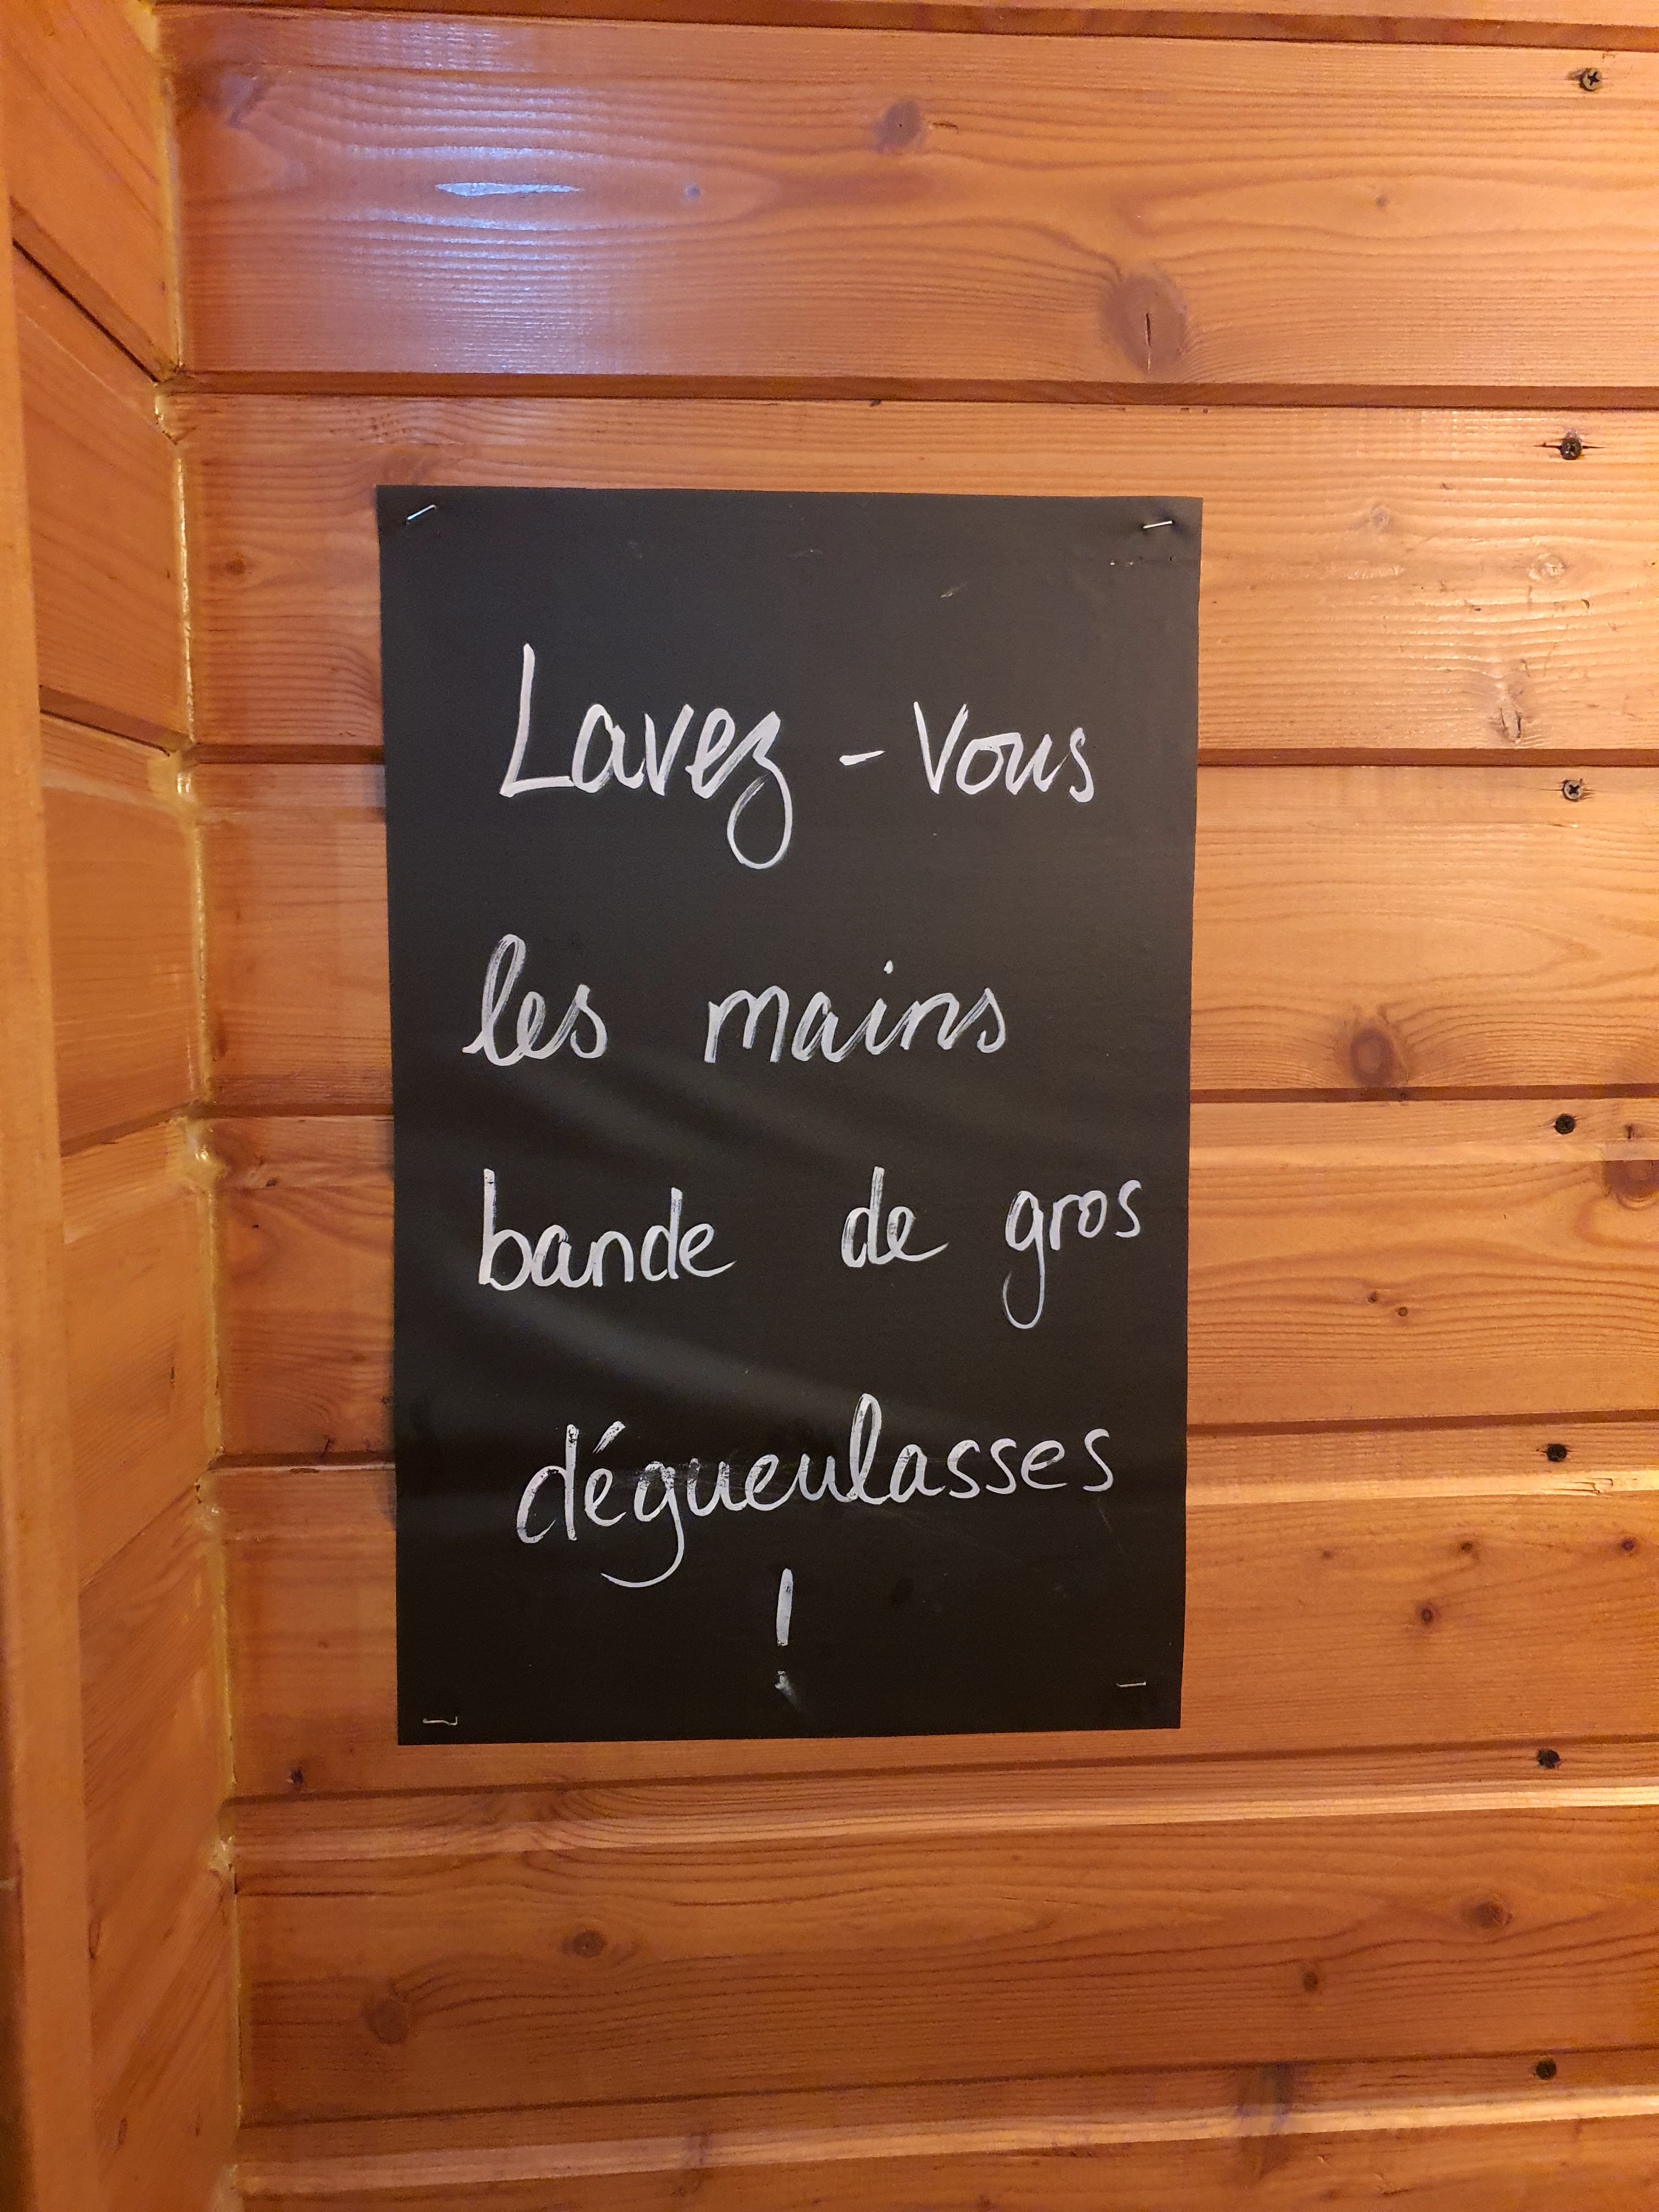 Lavez - Vous
les mains
bande de gros
dégueulasses
!